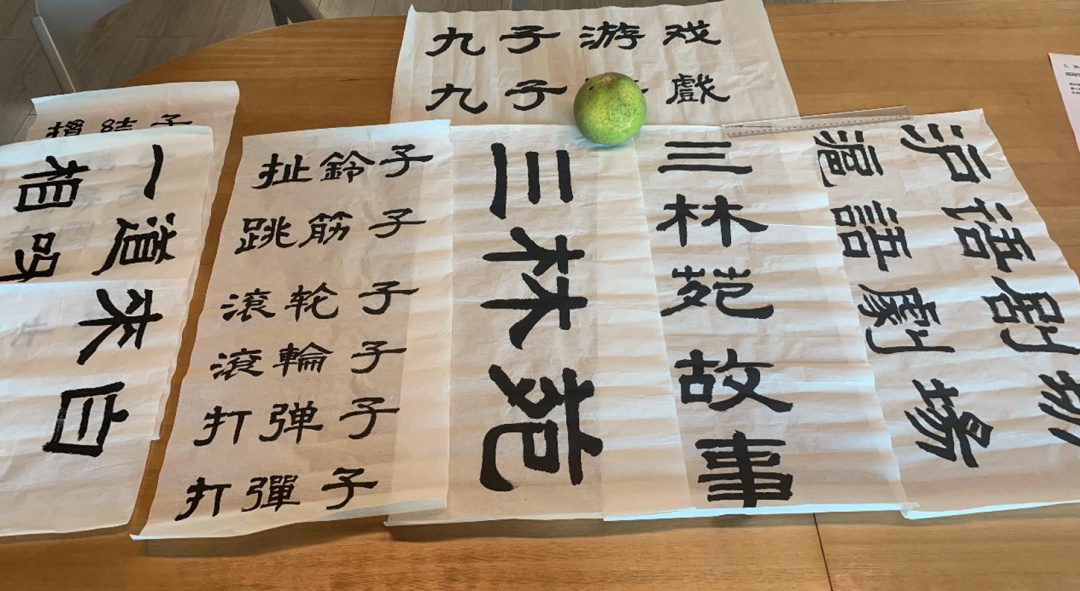 九子游戏
九子戲
結子
一道来白
相
扯鈴子
跳筋子
滚轮子
滾輪子
打弹子
打彈子
三林苑
三林苑故事
滬語劇場
沪语剧场